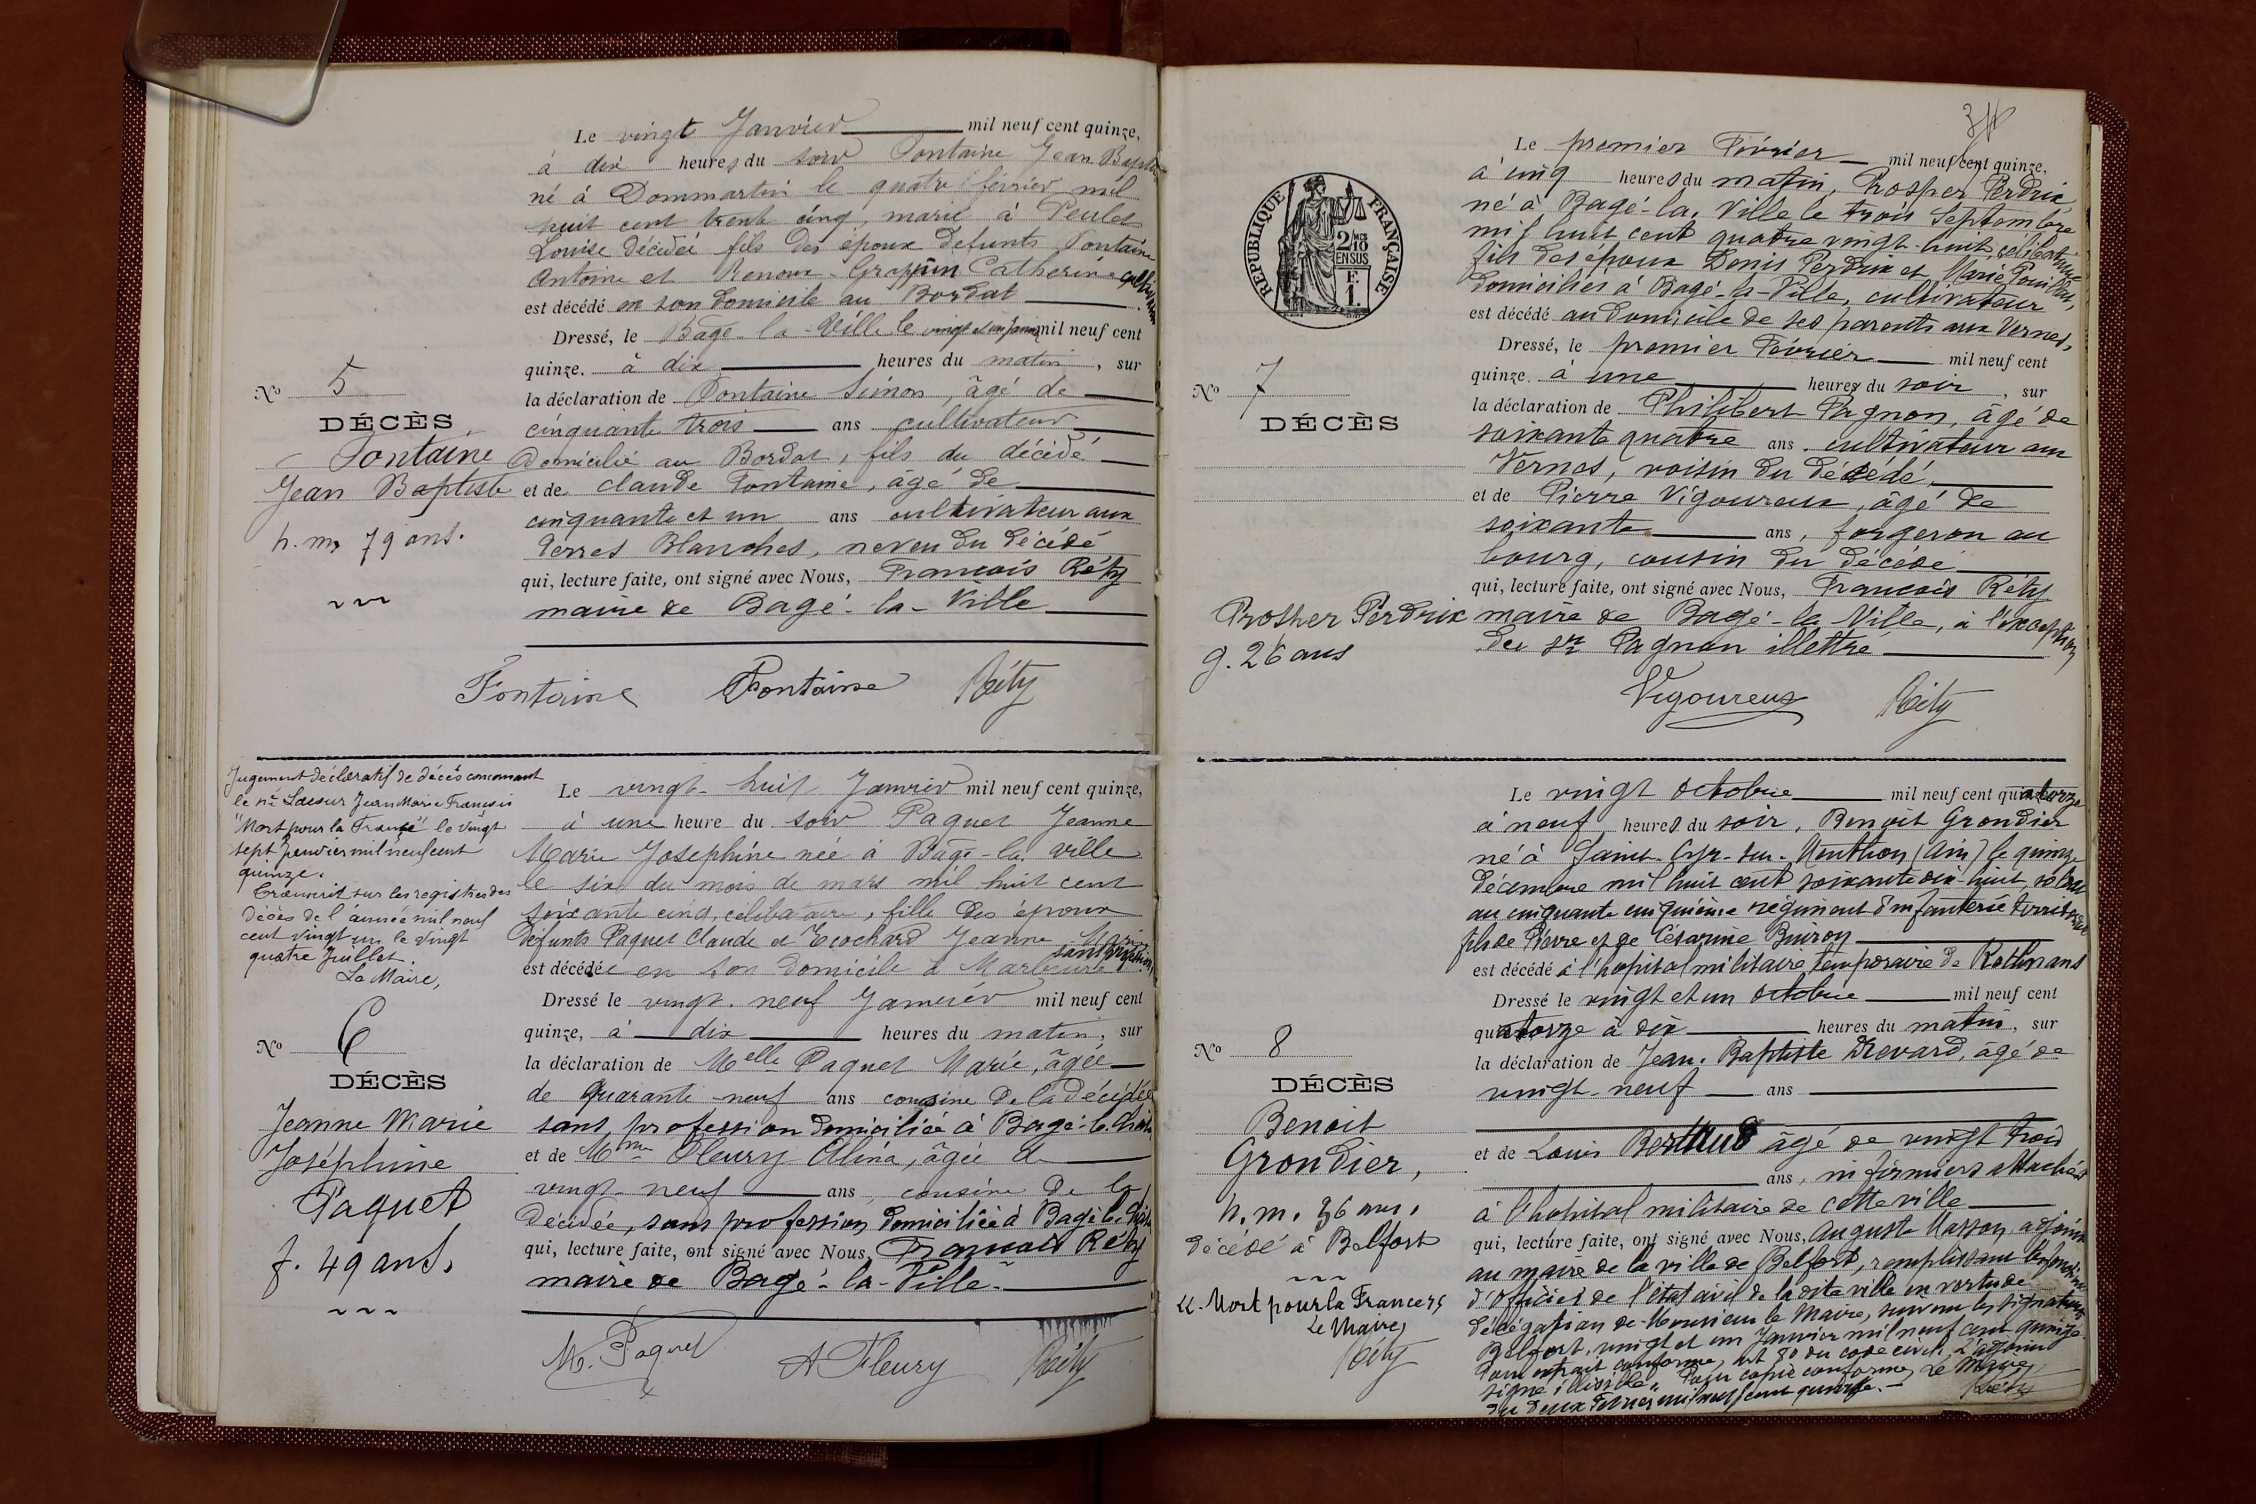 Le vingt Janvier mil neuf cent quinze,
à dix heures du soir Fontaine Jean Baptiste
né à Dommartin le quatre février mil
huit cent trente cinq, marié à Peulet
Louise décédée fils des époux défunts Fontaine
Antoine et Renoux-Grappin Catherine cultivateur
est décédé en son domicile au Bordat
Dressé, le Bâgé-la-Ville le vingt et un janvier mil neuf cent
quinze. à dix heures du matin, sur
la déclaration de Fontaine Simon, âgé de
cinquante trois ans cultivateur
Domicilié au Bordat, fils du décédé
et de Claude Fontaine, âgé de
cinquante et un ans cultivateur aux
Terres Blanches, neveu du décédé
qui, lecture faite, ont signé avec Nous, François Réty
maire de Bagé-la-Ville
Fontaine Fontaine Réty
No 5
DÉCÈS
Fontaine
Jean Baptiste
h. m. 79 ans.
Jugement déclaratif de décès concernant
le nè Jean Marie François
"Mort pour la France" le vingt
sept janvier mil neuf cent
quinze.
Transcrit sur les registres des
décès de l'année mil neuf
cent vingt un le vingt
quatre Juillet.
Le Maire,
No 6
DÉCÈS
Jeanne Marie
Joséphine
Paquet
f. 49 ans.
Le vingt-huit Janvier mil neuf cent quinze,
à une heure du soir Paquet Jeanne
Marie Josephine née à Bâgé-la-ville
le six du mois de mars mil huit cent
soixante cinq, célibataire, fille des époux
défunts Paquet Claude et Ecochard Jeanne Marie
sans profession,
est décédée en son domicile à
Dressé le vingt-neuf Janvier mil neuf cent
quinze, à dix heures du matin, sur
la déclaration de Melle Paquet Marie, âgée
de quarante-neuf ans cousine de la décédée
sans profession domiciliée à Bagé-le-Châtel
et de Mme Fleury Alina, âgée de
vingt-neuf ans, cousine de la
décédée, sans profession, domiciliée à Bagé-le-Châtel
qui, lecture faite, ont signé avec Nous, François Réty
maire de Bagé-la-Ville
M. Paquet A Fleury Réty
REPUBLIQUE FRANÇAISE
2/10
EN SUS
F.
1.
Le premier Février mil neuf cent quinze,
à cinq heures du matin, Prosper Perdrix
né à Bagé-la-Ville le trois Septembre
mil huit cent quatre vingt-huit, célibataire
fils des époux Denis Perdrix et Marie Pouillat,
domiciliés à Bagé-la-Ville, cultivateur,
est décédé au domicile de ses parents aux Vernes,
Dressé, le premier Février mil neuf cent
quinze. à une heures du soir, sur
la déclaration de Philibert Pagnon, âgé de
soixante quatre ans, cultivateur au
Vernes, voisin du décédé,
et de Pierre Vigoureux, âgé de
soixante ans, forgeron au
bourg, cousin du décédé
qui, lecture faite, ont signé avec Nous, François Réty
maire de Bagé-la-Ville, à l'exception
du sr Pagnon illettré
Vigoureux Réty
No 7
DÉCÈS
Prosper Perdrix
g. 26 ans
Le vingt octobre mil neuf cent quatorze
à neuf heures du soir, Benoit Grondier
né à Saint-Cyr-sur-Menthon (Ain) le quinze
décembre mil huit cent soixante dix-huit, soldat
au cinquante cinquième régiment d'infanterie territoriale
fils de Pierre et de Césarine Buiron
est décédé à l'hopital militaire temporaire de Rethnans
Dressé le vingt et un octobre mil neuf cent
quatorze à dix heures du matin, sur
la déclaration de Jean-Baptiste Drevard, âgé de
vingt-neuf ans
et de Louis Bertaud âgé de vingt trois
ans, infirmiers attachés
à l'hopital militaire de cette ville
qui, lecture faite, ont signé avec Nous, Auguste Masson, adjoint
au maire de la ville de Belfort, remplissant les fonctions
d'officier de l'état civil de la dite ville en vertu de
délégation de Monsieur le Maire, suivent les signatures
Belfort, vingt et un Janvier mil neuf cent quinze.
Pour extrait conforme, art 80 du code civil, L'adjoint
signé illisible". Pour copie conforme, Le Maire,
du deux Février mil neuf cent quinze.
Réty
No 8
DÉCÈS
Benoit
Grondier,
h. m. 36 ans.
décédé à Belfort
"Mort pour la France"
Le Maire,
Réty